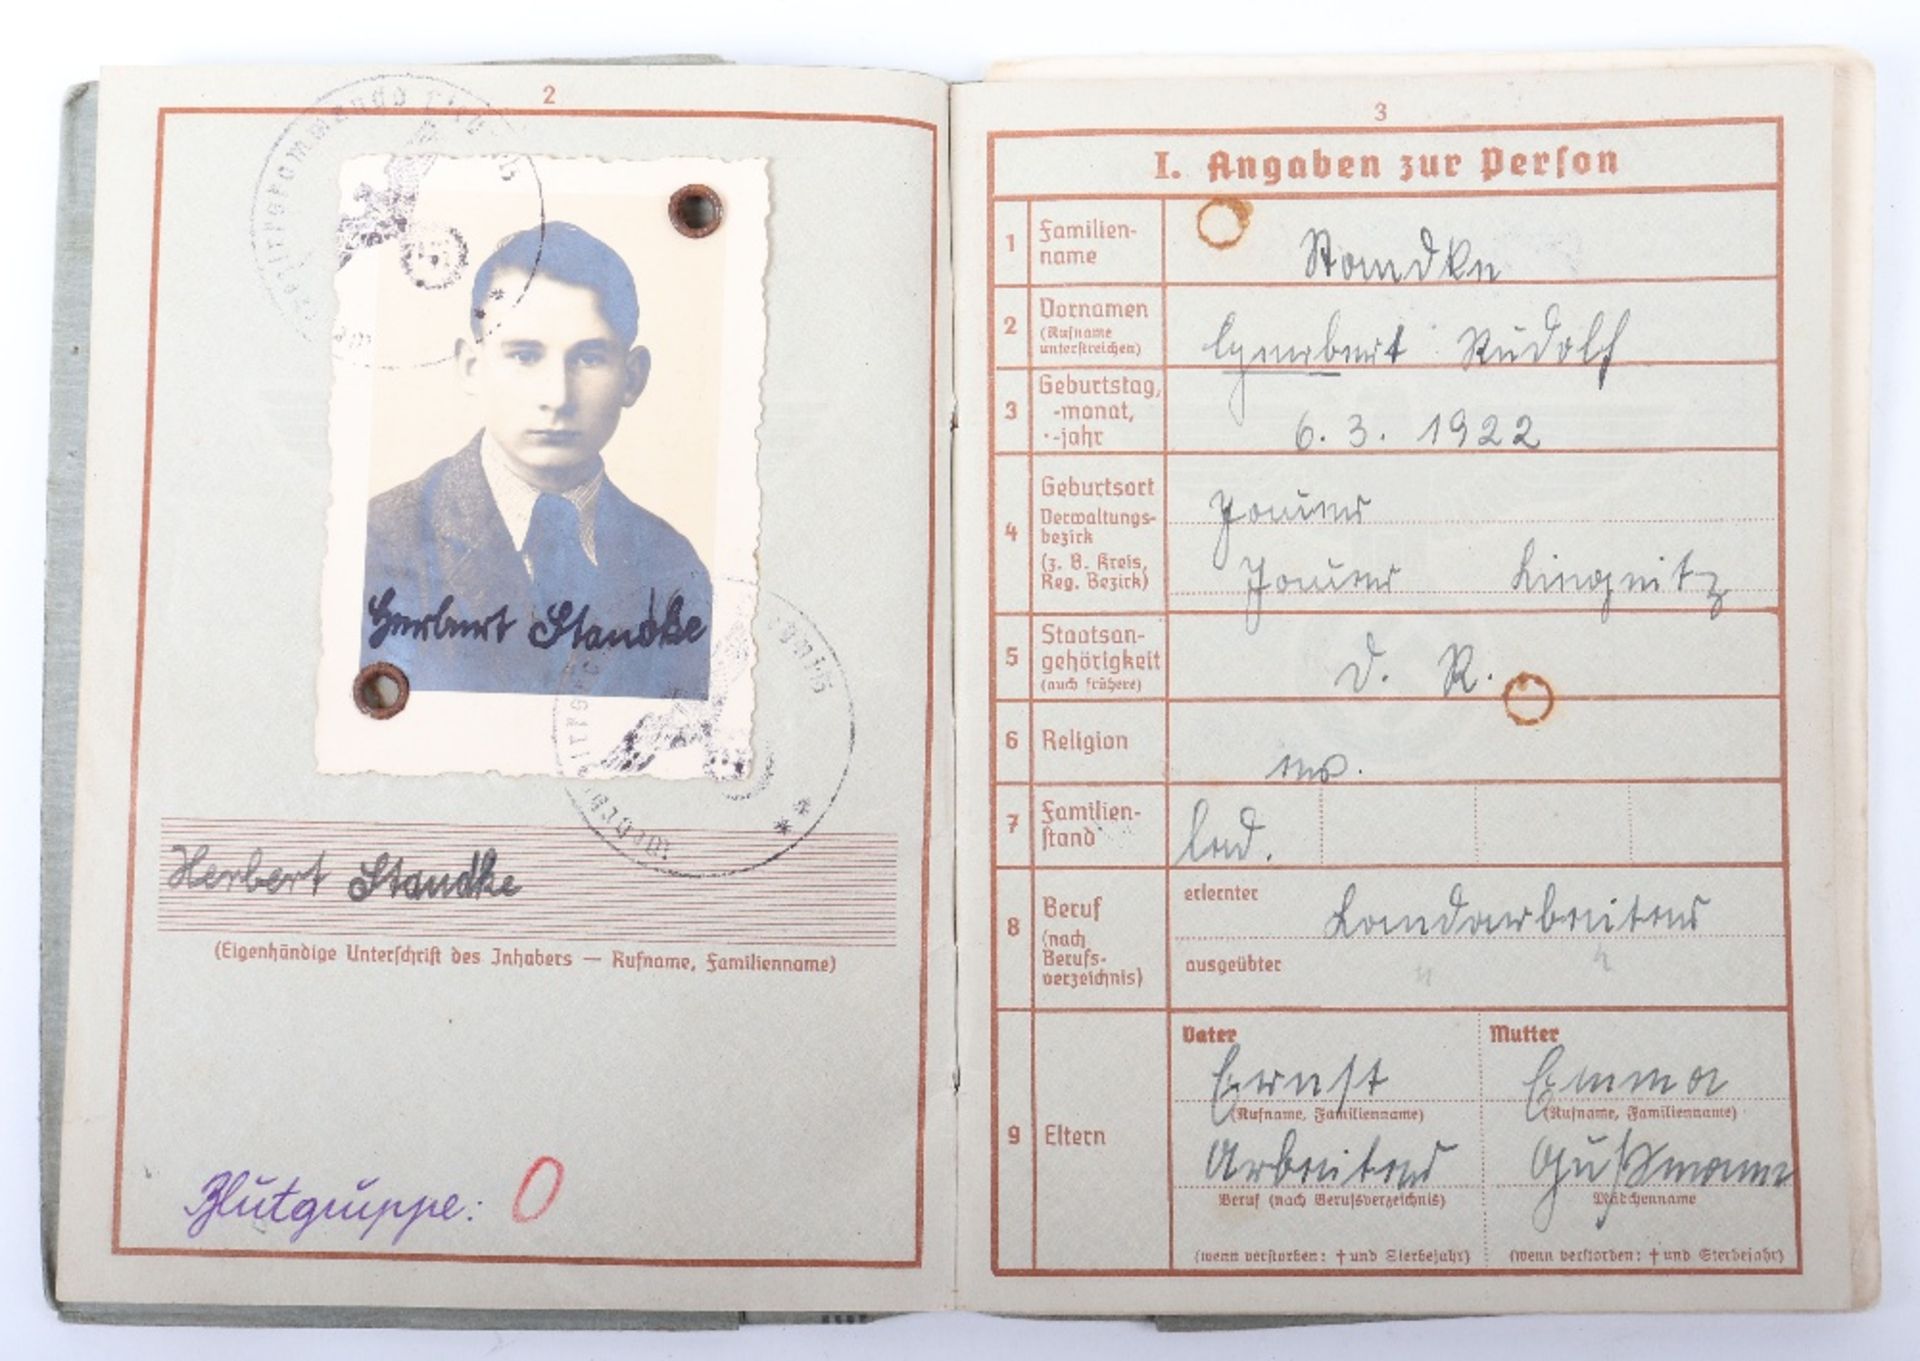 2
Herbert Standke
Herbert Standke
(Eigenhändige Unterschrift des Inhabers — Rufname, Familienname)
Blutgruppe: O
3
I. Angaben zur Person
1 Familien-
name
Standke
2 Vornamen
(Rufname
unterstreichen)
Herbert Rudolf
3 Geburtstag,
-monat,
-jahr
6. 3. 1922
4 Geburtsort
Verwaltungs-
bezirk
(z. B. Kreis,
Reg. Bezirk)
Jauer
Jauer Liegnitz
5 Staatsan-
gehörigkeit
(auch frühere)
D. R.
6 Religion
ev.
7 Familien-
stand
led.
8 Beruf
(nach
Berufs-
verzeichnis)
erlernter
Landarbeiter
ausgeübter
" "
9 Eltern
Vater Mutter
Ernst Emma
(Rufname, Familienname) (Rufname, Familienname)
Arbeiter Gußmann
Beruf (nach Berufsverzeichnis) Mädchenname
(wenn verstorben: † und Sterbejahr) (wenn verstorben: † und Sterbejahr)